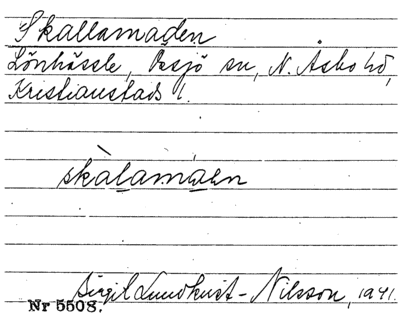 Skallamaden
Lönhässle, Össjö sn, N. Åsbo hd,
Kristianstads l.
skàlamáen
Birgit Lundkvist-Nilsson, 1941.
Nr 5508.